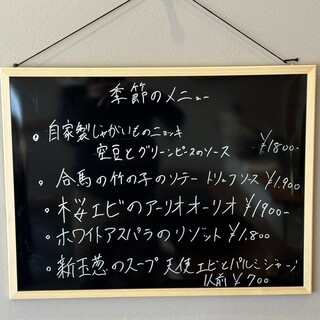 季節のメニュー
• 自家製じゃがいものニョッキ
空豆とグリーンピースのソース ¥1800-
• 合馬の竹の子のソテー トリュフソース ¥1.900
• 桜エビのアーリオオーリオ ¥1900-
• ホワイトアスパラのリゾット ¥1,800
• 新玉葱のスープ 天使エビとパルミジャーノ
1人前 ¥700